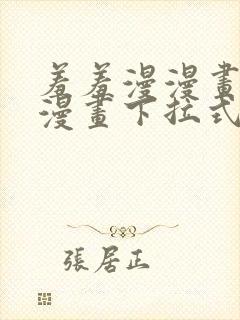 羞羞漫漫畫
漫畫下拉式
張居正